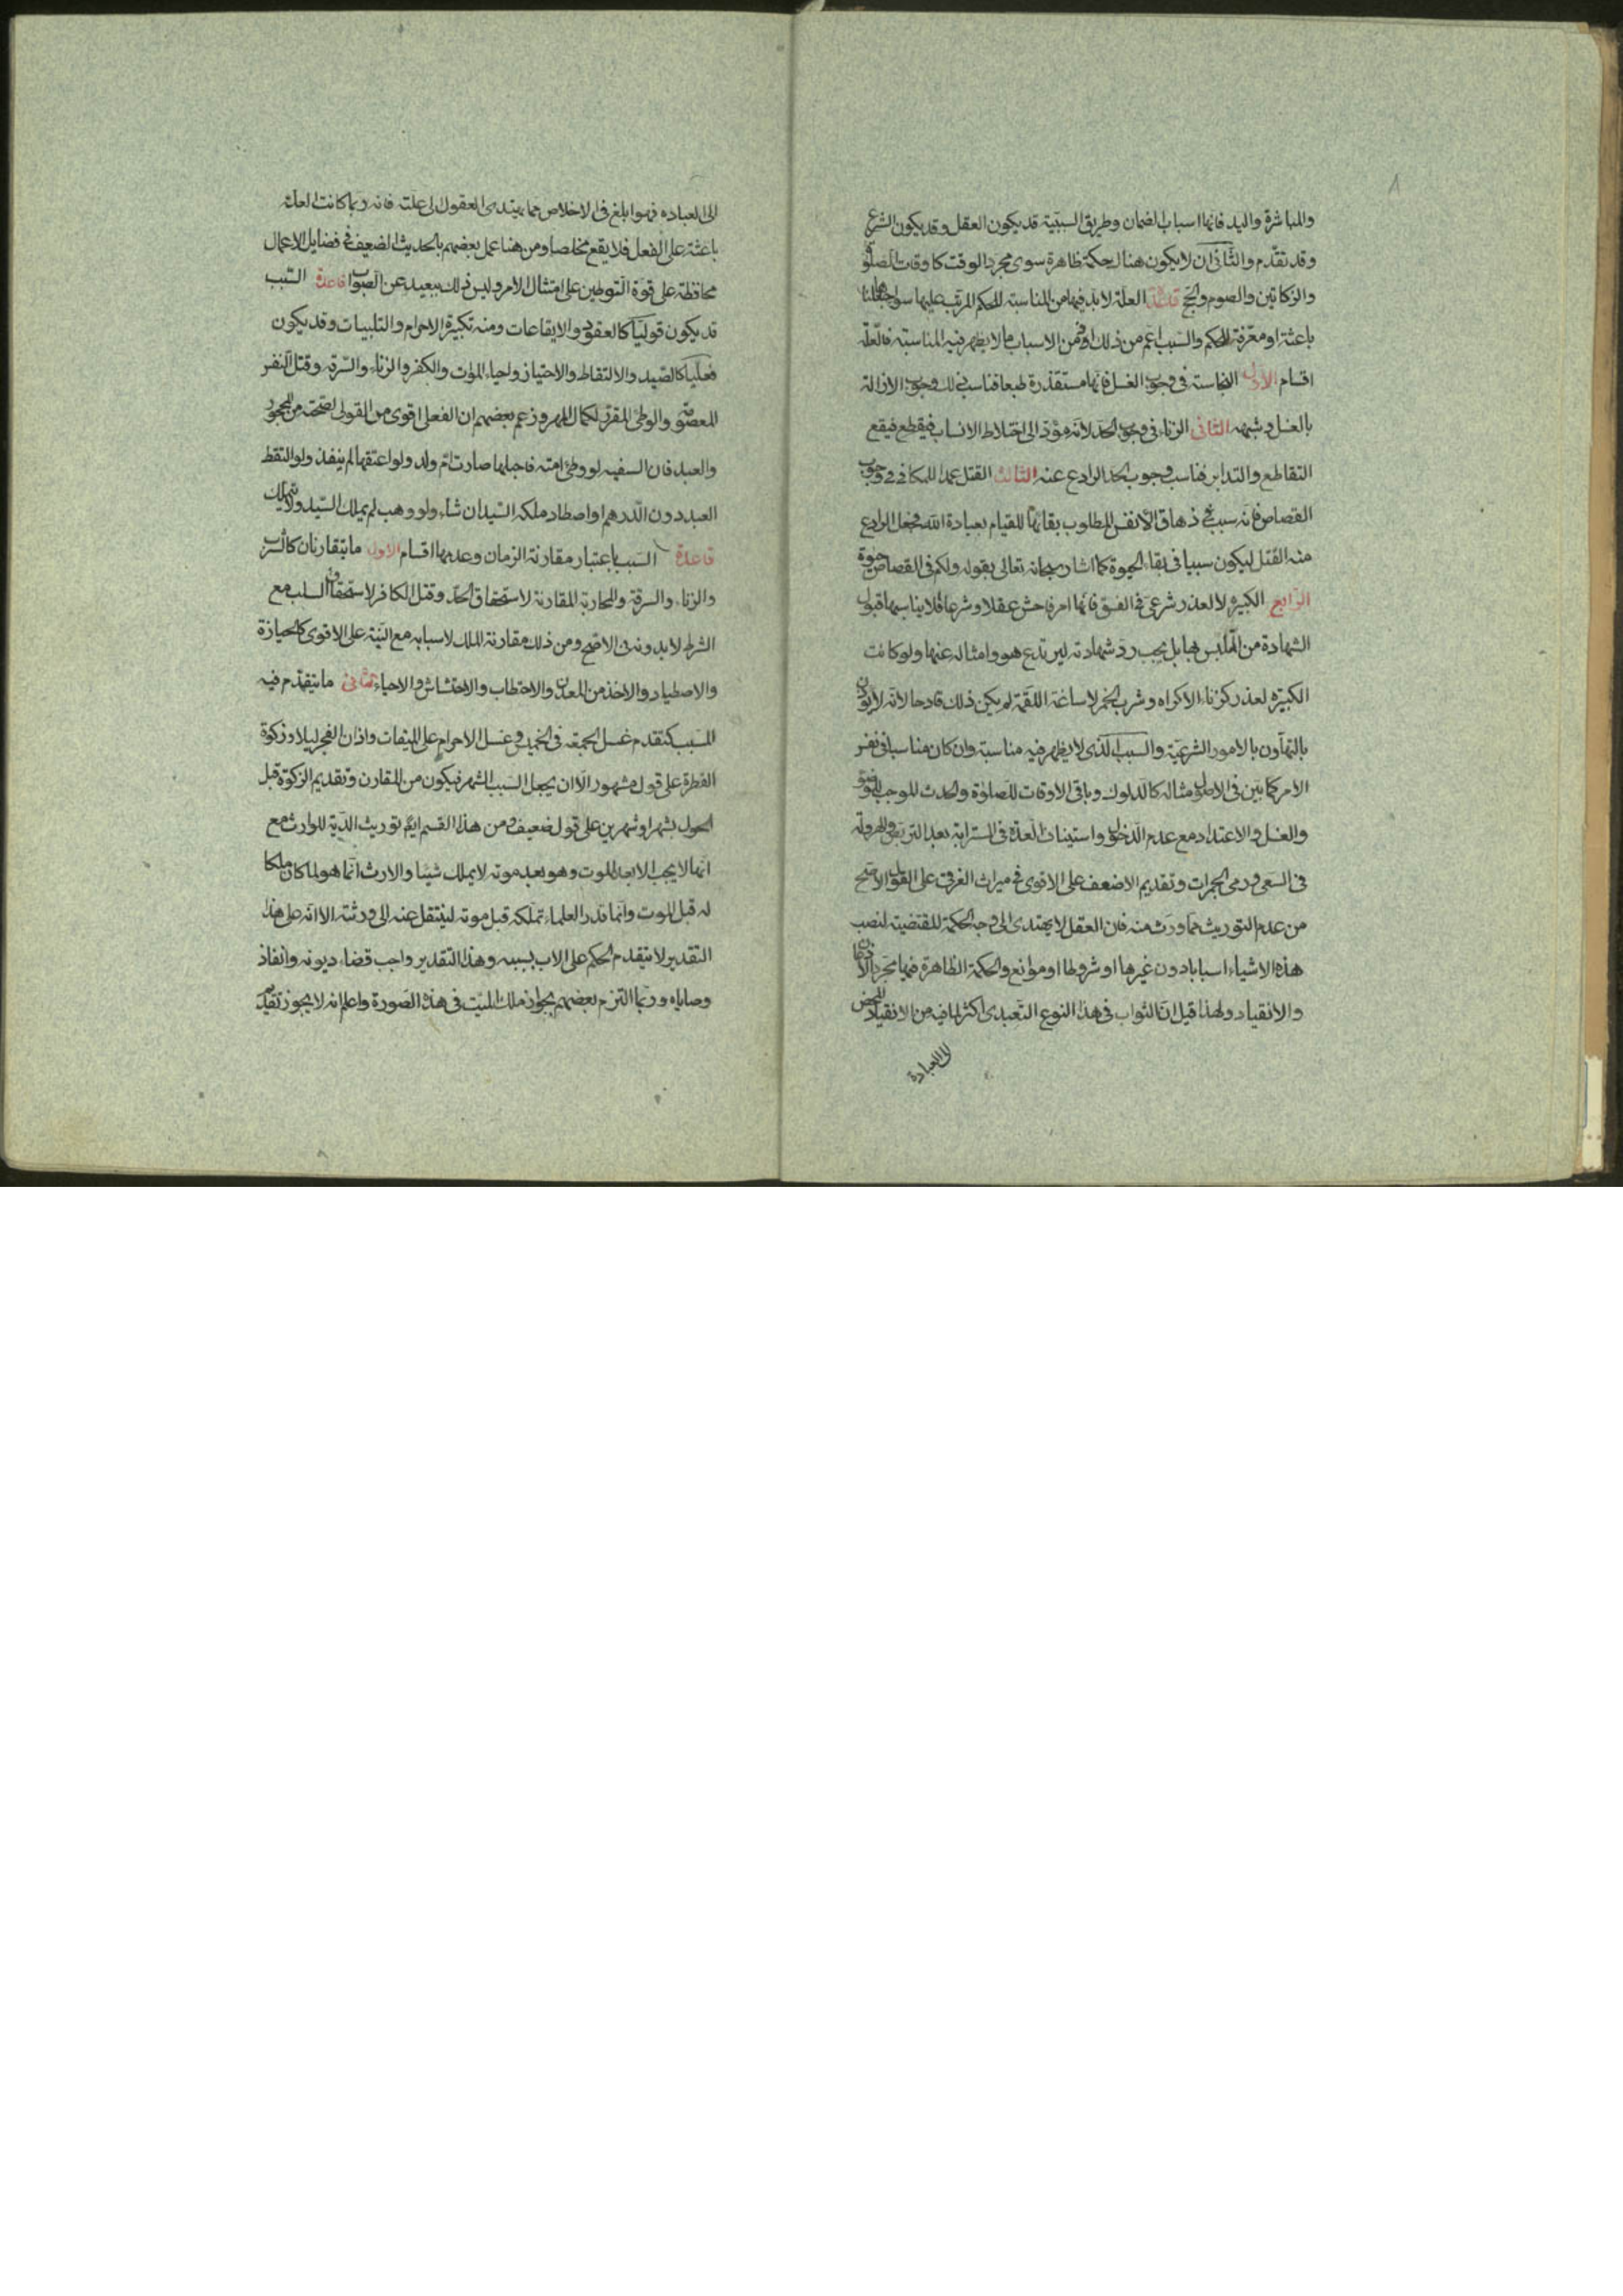 والمباشرة واليد فانها اسباب الضمان وطريق السببية قد يكون العقل وقد يكون الشرع
وقد تقدم والثانى ان لا يكون هناك حكمة ظاهرة سوى مجرد الوقت كاوقات الصلوة
والزكاتين والصوم والحج العلة لا بد فيها من المناسبة للحكم المرتب عليها سواء جعلناها
باعثة او معرفة للحكم والسبب اعم من ذلك فمن الاسباب ما لا يظهر فيه المناسبة فالعلة
اقسام الاول النجاسة فى وجوب الغسل فانها مستقذرة طبعا فناسب ذلك وجوب الازالة
بالغسل وشبهه الثانى الزناء فى وجوب الحد لانه مؤد الى اختلاط الانساب فيقطع فيقع
التقاطع والتدابر فناسب وجوب الحد الرادع عنه الثالث القتل عمدا للمكافى فى وجوب
القصاص فانه سبب فى ذهاق الانفس المطلوب بقائها للقيام بعبادة الله فجعل الرادع
منه القتل ليكون سببا فى بقاء الحيوة كما اشار سبحانه تعالى بقوله ولكم فى القصاص حيوة
الرابع الكبيرة لا لعذر شرعى فى الفسق فانها امر فاحش عقلا وشرعا فلا يناسبها قبول
الشهادة من المتلبس بها بل يجب رد شهادته ليرتدع هو وامثاله عنها ولو كانت
الكبيرة لعذر كزناء الاكراه وشرب الخمر لاساغة اللقمة لم يكن ذلك قادحا لانه لا يؤذن
بالتهاون بالامور الشرعية والسبب الذى لا يظهر فيه مناسبة وان كان مناسبا فى نفس
الامر كما بين فى الاصول مثاله كالدلوك وباقى الاوقات للصلوة والحدث الموجب للوضوء
والغسل والاعتداد مع عدم الدخول واستيناف العدة فى المسترابة بعد التربص والهرولة
فى السعى ورمى الجمرات وتقديم الاضعف على الاقوى فى ميراث الغرقى على القول الاصح
من عدم التوريث مما ورث منه فان العقل لا يهتدى الى وجه الحكمة المقتضية لنصب
هذه الاشياء اسبابا دون غيرها او شروطا او موانع والحكمة الظاهرة فيها مجرد الاذعان
والانقياد ولهذا قيل ان الثواب فى هذا النوع التعبدى اكثر لما فيه من الانقياد المحض
الى العبادة
الى العباده فهو ابلغ فى الاخلاص مما يهتدى العقول الى علته فانه ربما كانت العلة
باعثة على الفعل فلا يقع مخلصا ومن هنا عمل بعضهم بالحديث الضعيف فى فضايل الاعمال
محافظة على قوة التوطين على امتثال الامر وليس ذلك ببعيد عن الصواب قاعدة السبب
قد يكون قوليا كالعقود والايقاعات ومنه تكبيرة الاحرام والتلبيات وقد يكون
فعليا كالصيد والالتقاط والاحتياز واحياء الموات والكفر والزناء والسرقة وقتل النفس
المعصومة والوطى المقرر لكمال المهر وزعم بعضهم ان الفعلى اقوى من القولى لصحته من المحجور
والعبد فان السفيه لو وطى امته فاحبلها صارت ام ولد ولو اعتقها لم ينفذ ولو التقط
العبد دون الدرهم او اصطاد ملكه السيد ان شاء ولو وهب لم يملك السيد ولا يتملك
قاعدة السبب باعتبار مقارنة الزمان وعدمها اقسام الاول ما يتقارنان كالشرب
والزناء والسرقة والمحاربة المقارنة لاستحقاق الحد وقتل الكافر لاستحقاق السلب مع
الشرط لا بدونه فى الاصح ومن ذلك مقارنة الملك لاسبابه مع النية على الاقوى كالحيازة
والاصطياد والاخذ من المعدن والاحتطاب والاحتشاش والاحياء الثانى ما يتقدم فيه
المسبب كتقدم غسل الجمعة فى الخميس وغسل الاحرام على الميقات واذان الفجر ليلا وزكوة
الفطرة على قول مشهور الا ان يجعل السبب الشهر فيكون من المقارن وتقديم الزكوة قبل
الحول بشهر او شهرين على قول ضعيف ومن هذا القسم ايضا توريث الدية للوارث مع
انها لا يجب الا بعد الموت وهو بعد موته لا يملك شيئا والارث انما هو لما كان ملكا
له قبل الموت وانما قدر العلماء تملكه قبل موته لينتقل عنه الى ورثته الا انه على هذا
التقدير لا يتقدم الحكم على الاب بسببه وهذا التقدير واجب قضاء ديونه وانفاذ
وصاياه وربما التزم بعضهم بجواز ملك الميت فى هذه الصورة واعلم انه لا يجوز تقديم